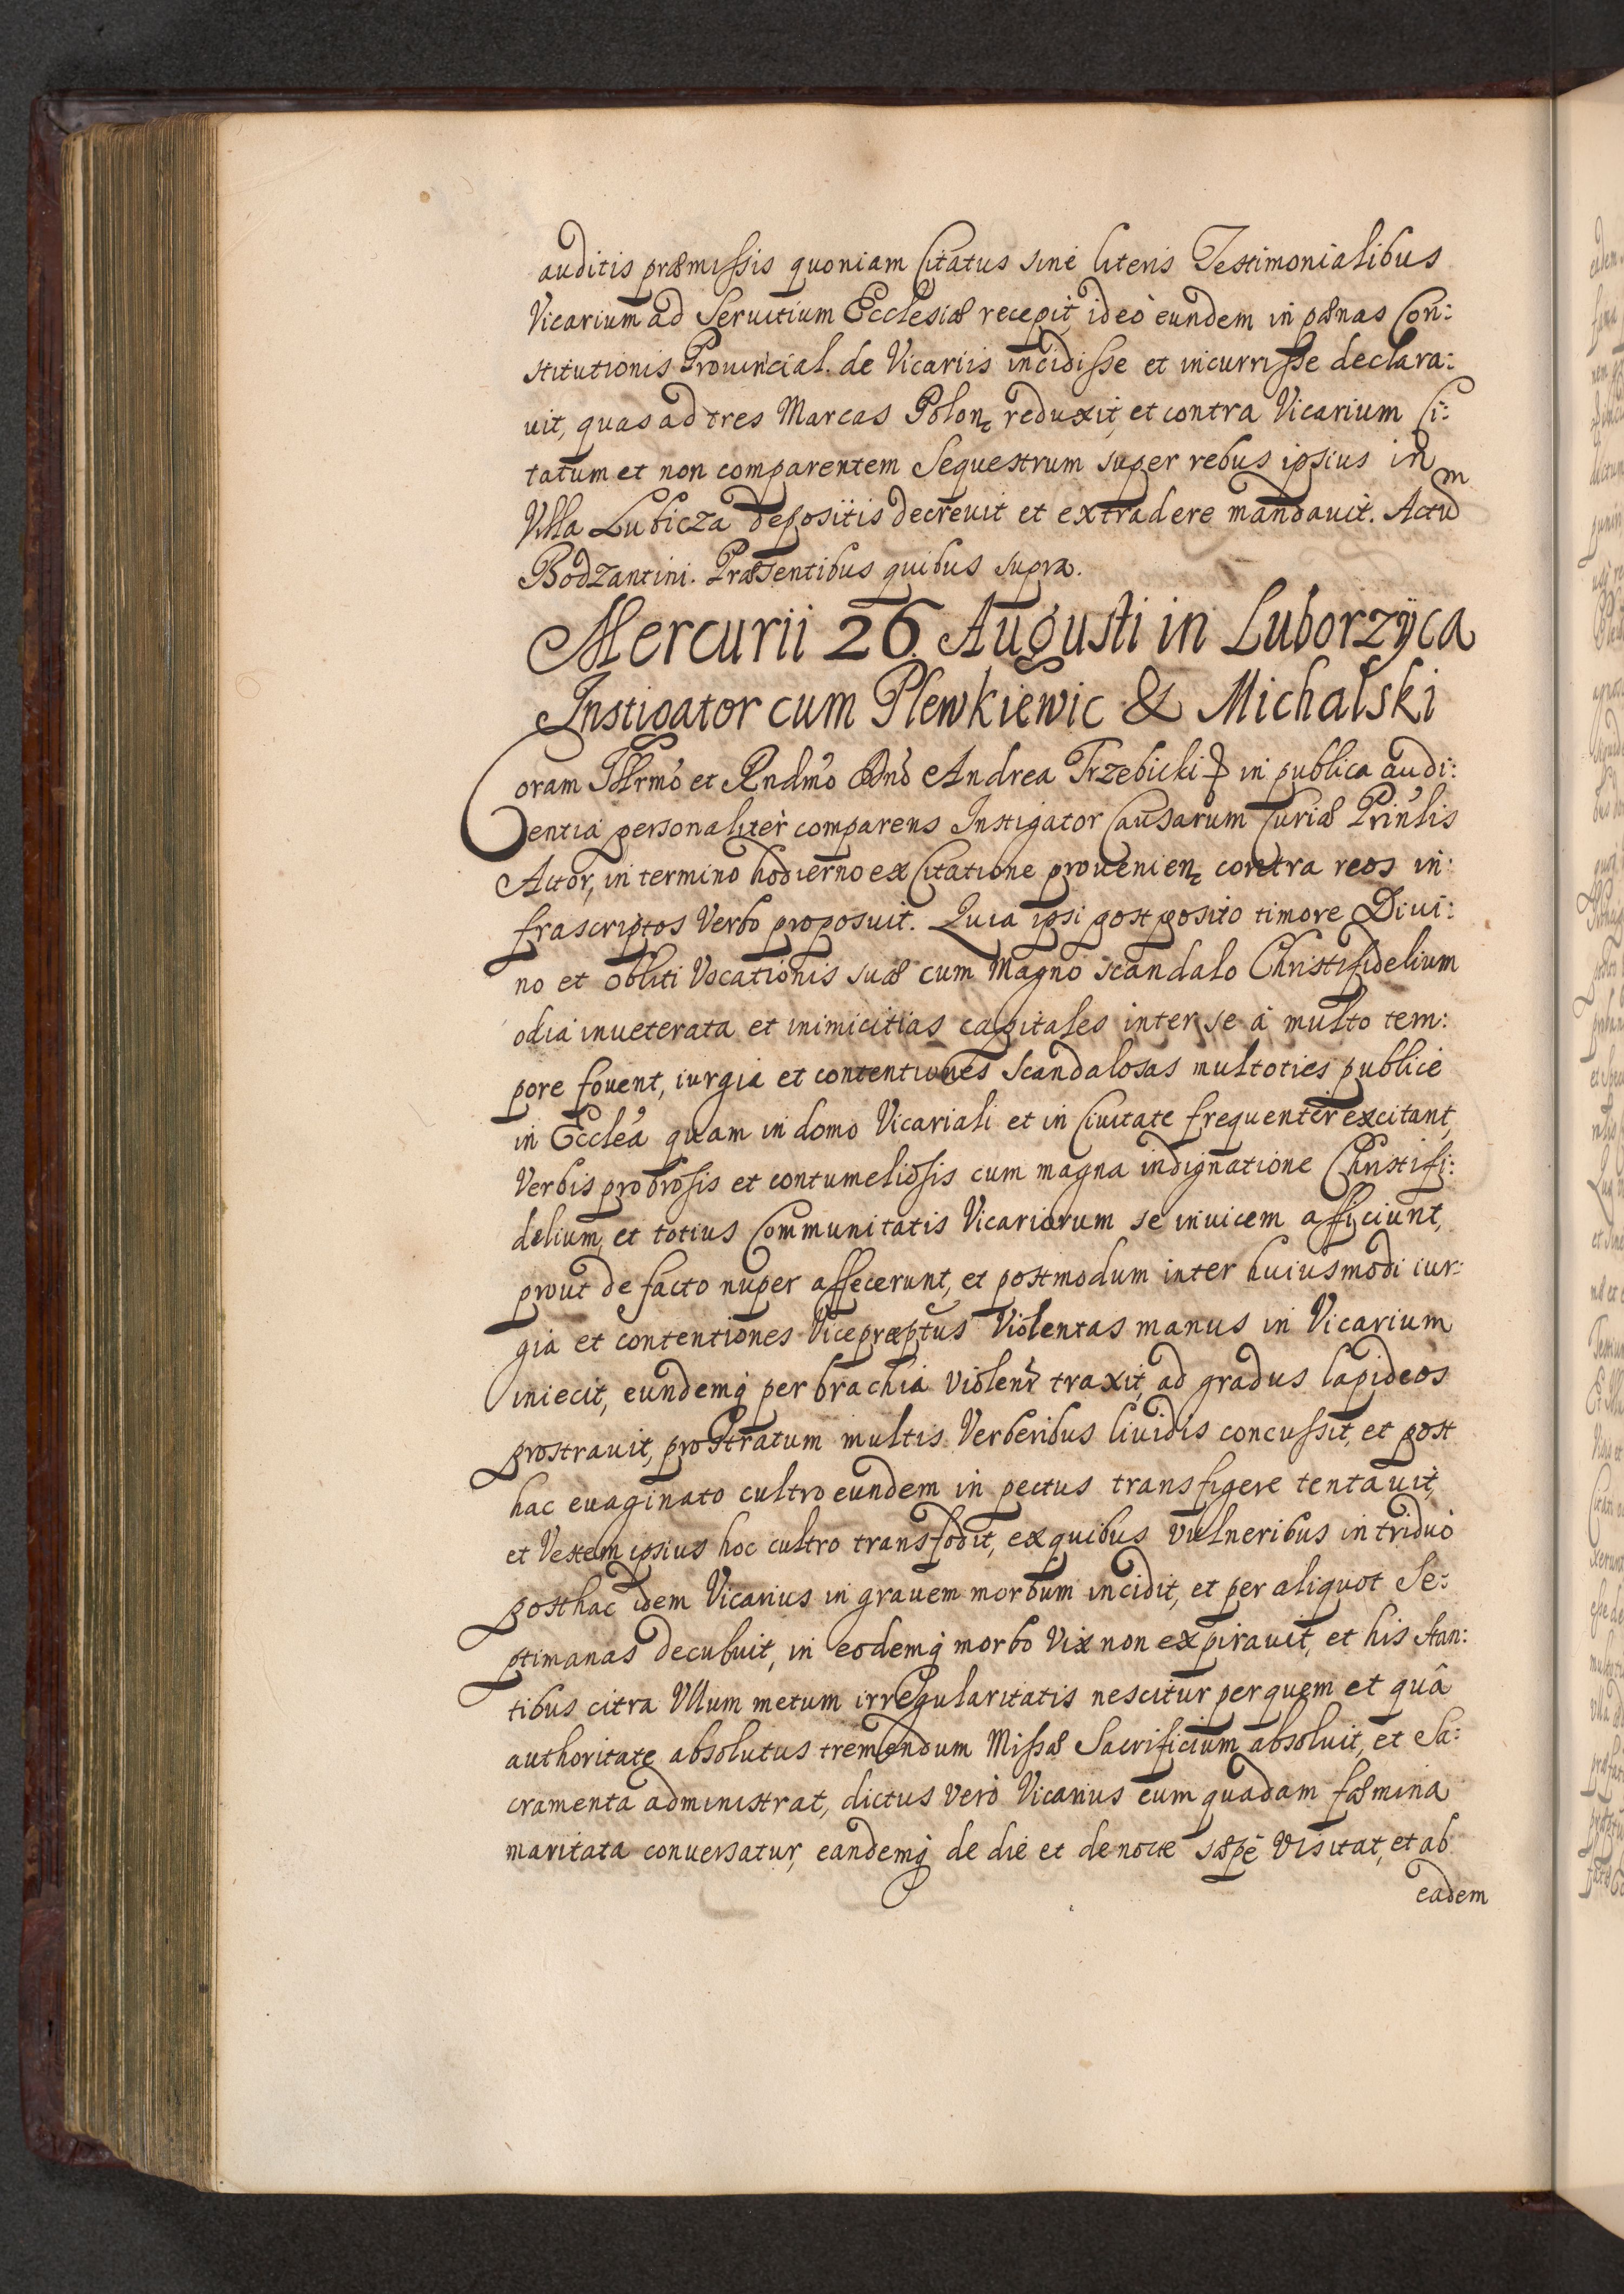 auditis præmissis quoniam Citatus sinè literis Testimonialibus
Vicarium ad Seruitium Ecclesiæ recepit, ideò eundem in pænas Con:
stitutionis Prouincial. de Vicariis incidisse et incurrisse declara:
uit, quas ad tres Marcas Polon, reduxit, et contra Vicarium Ci:
tatum et non comparentem Sequestrum super rebus ipsius in
Villa Lubicza depositis decreuit et extradere mandauit. Actum
Bodzantini. Præsentibus quibus supra.
Mercurii 26. Augusti in Luborzÿca
Instigator cum Plewkiewic & Michalski
Coram Illrmo et Rndmo Dno Andrea Trzebicki in publica audi:
entia personalitèr comparens Instigator Causarum Curiæ Prinlis
Actor, in termino hodierno ex Citatione prouenien, contra reos in:
frascriptos Verbo proposuit. Quia ipsi postposito timore Diui:
no et obliti Vocationis suæ cum Magno scandalo Christifidelium
odia inueterata et inimicitias capitales inter se à multo tem:
pore fouent, iurgia et contentiones scandalosas multoties publicè
in Eccleá quam in domo Vicariali et in Ciuitate frequentèr excitant,
Verbis probrosis et contumeliosis cum magna indignatione Christifi:
delium, et totius Communitatis Vicariorum se inuicem afficiunt,
prout de facto nuper affecerunt, et postmodum inter huiusmodi iur:
gia et contentiones Vicepræptus Violentas manus in Vicarium
iniecit, eundemq per brachia violenr traxit, ad gradus lapideos
prostrauit, prostratum multis Verberibus liuidis concussit, et post
hac euaginato cultro eundem in pectus transfigere tentauit,
et Vestem ipsius hoc cultro transfodit, ex quibus vulneribus in triduo
posthac idem Vicarius in grauem morbum incidit, et per aliquot Se:
ptimanas decubuit, in eodemq morbo Vix non expirauit, et his stan:
tibus citra Vllum metum irregularitatis nescitur per quem et quâ
authoritate absolutus tremendum Missæ Sacrificium absoluit, et Sa:
cramenta administrat, dictus verò Vicarius cum quadam fæmina
maritata conuersatur, eandemq de die et de nocte sæpè Visitat, et ab
eadem